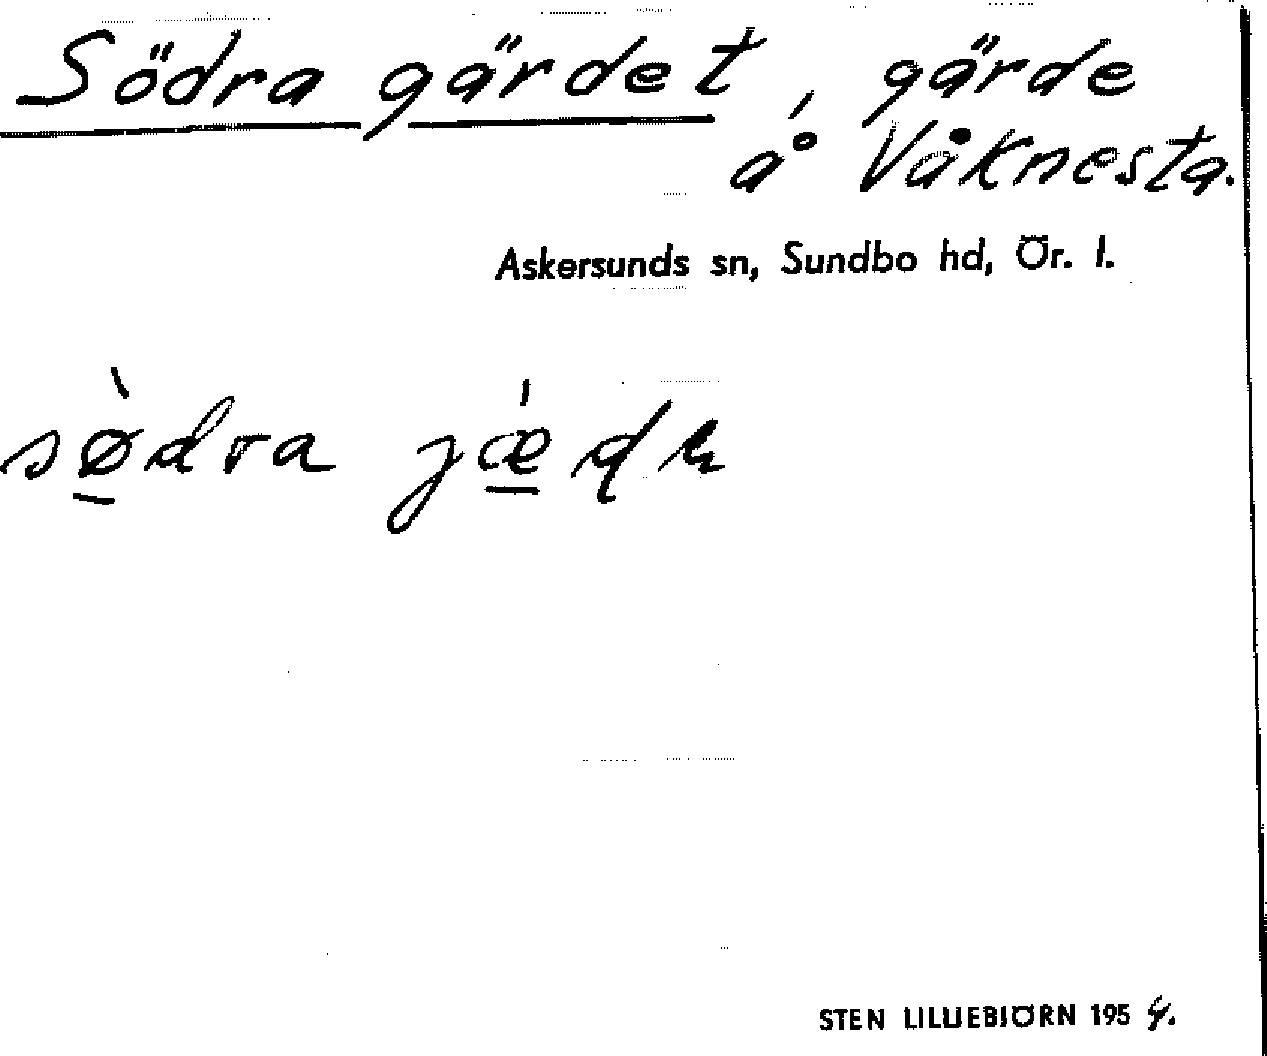 Södra gärdet, gärde
å Våknesta.
Askersunds sn, Sundbo hd, Ör. l.
sø̀dra
STEN LILLIEBJÖRN 1954.